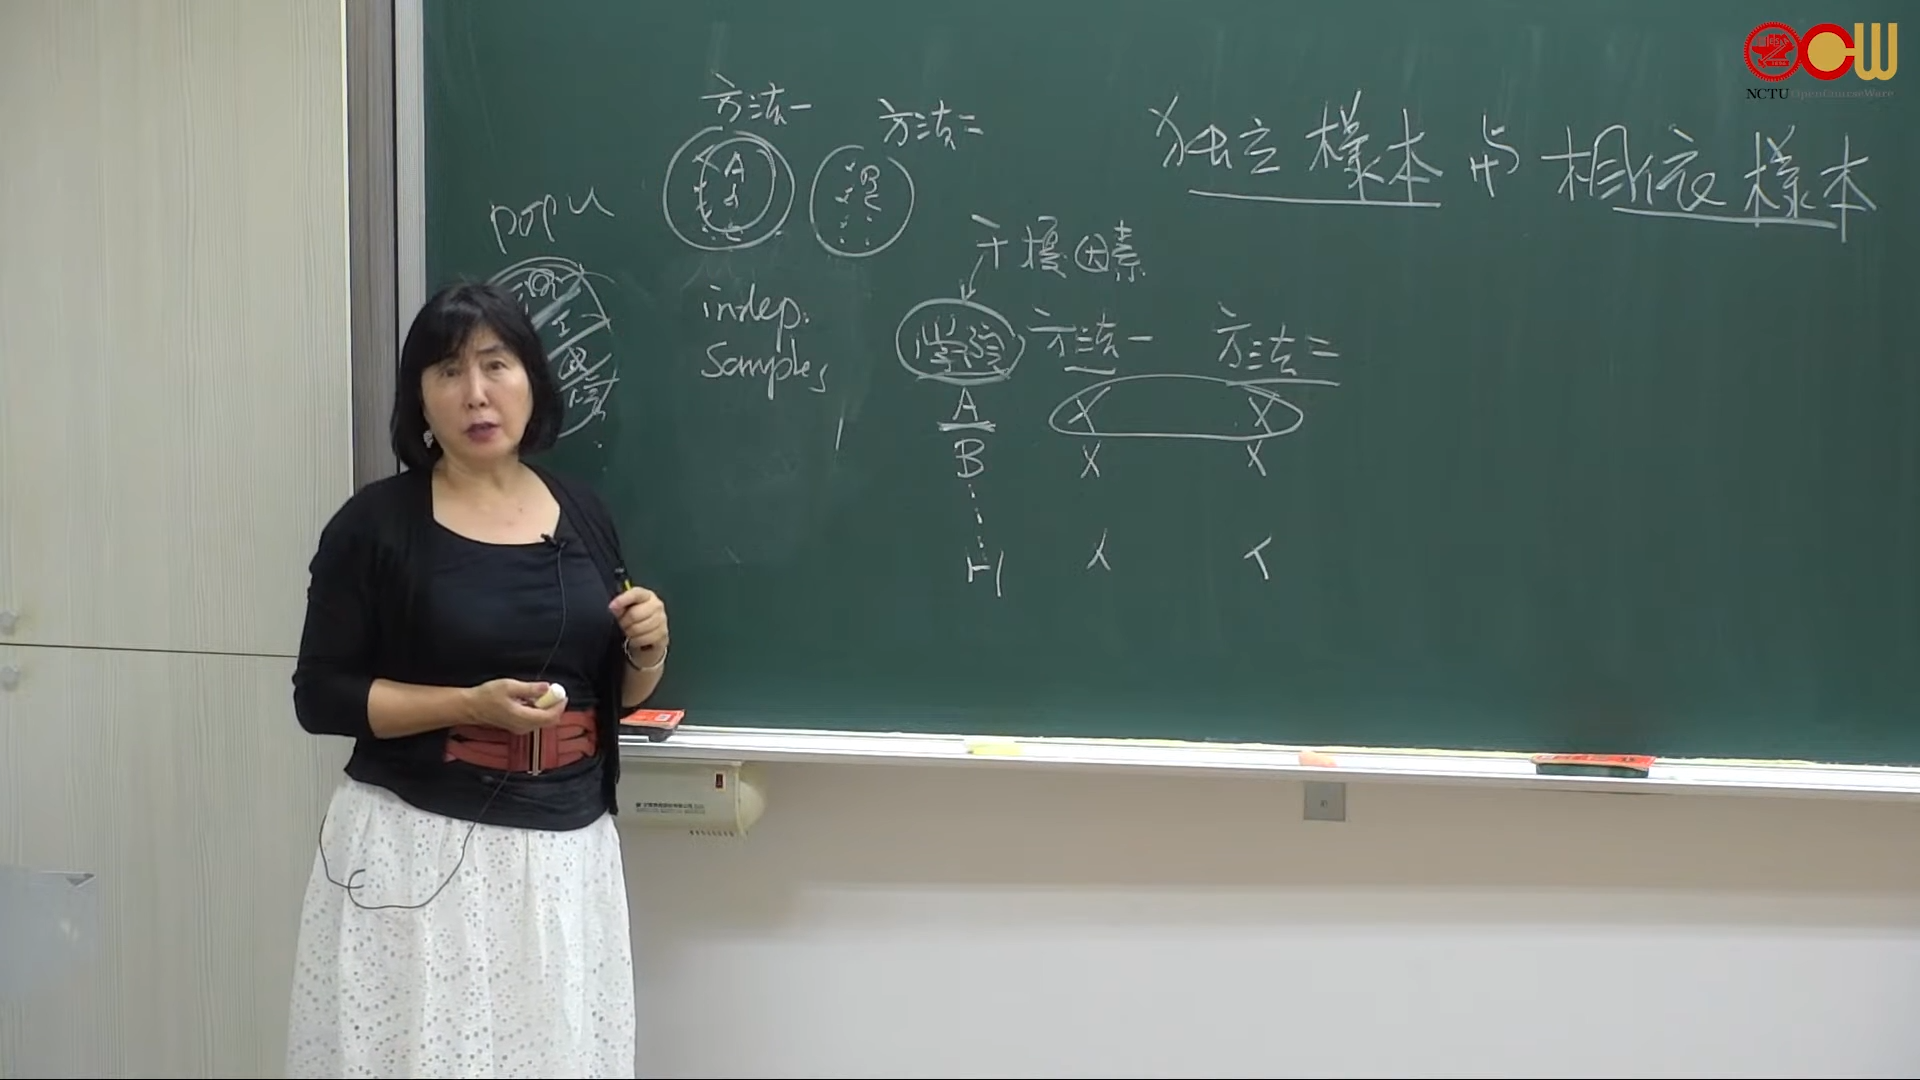 NCTU OpenCourseWare
独立樣本与相依樣本
方法一
方法二
A
popu
indep.
samples
干擾因素
方法一 方法二
A X X
B X X
H